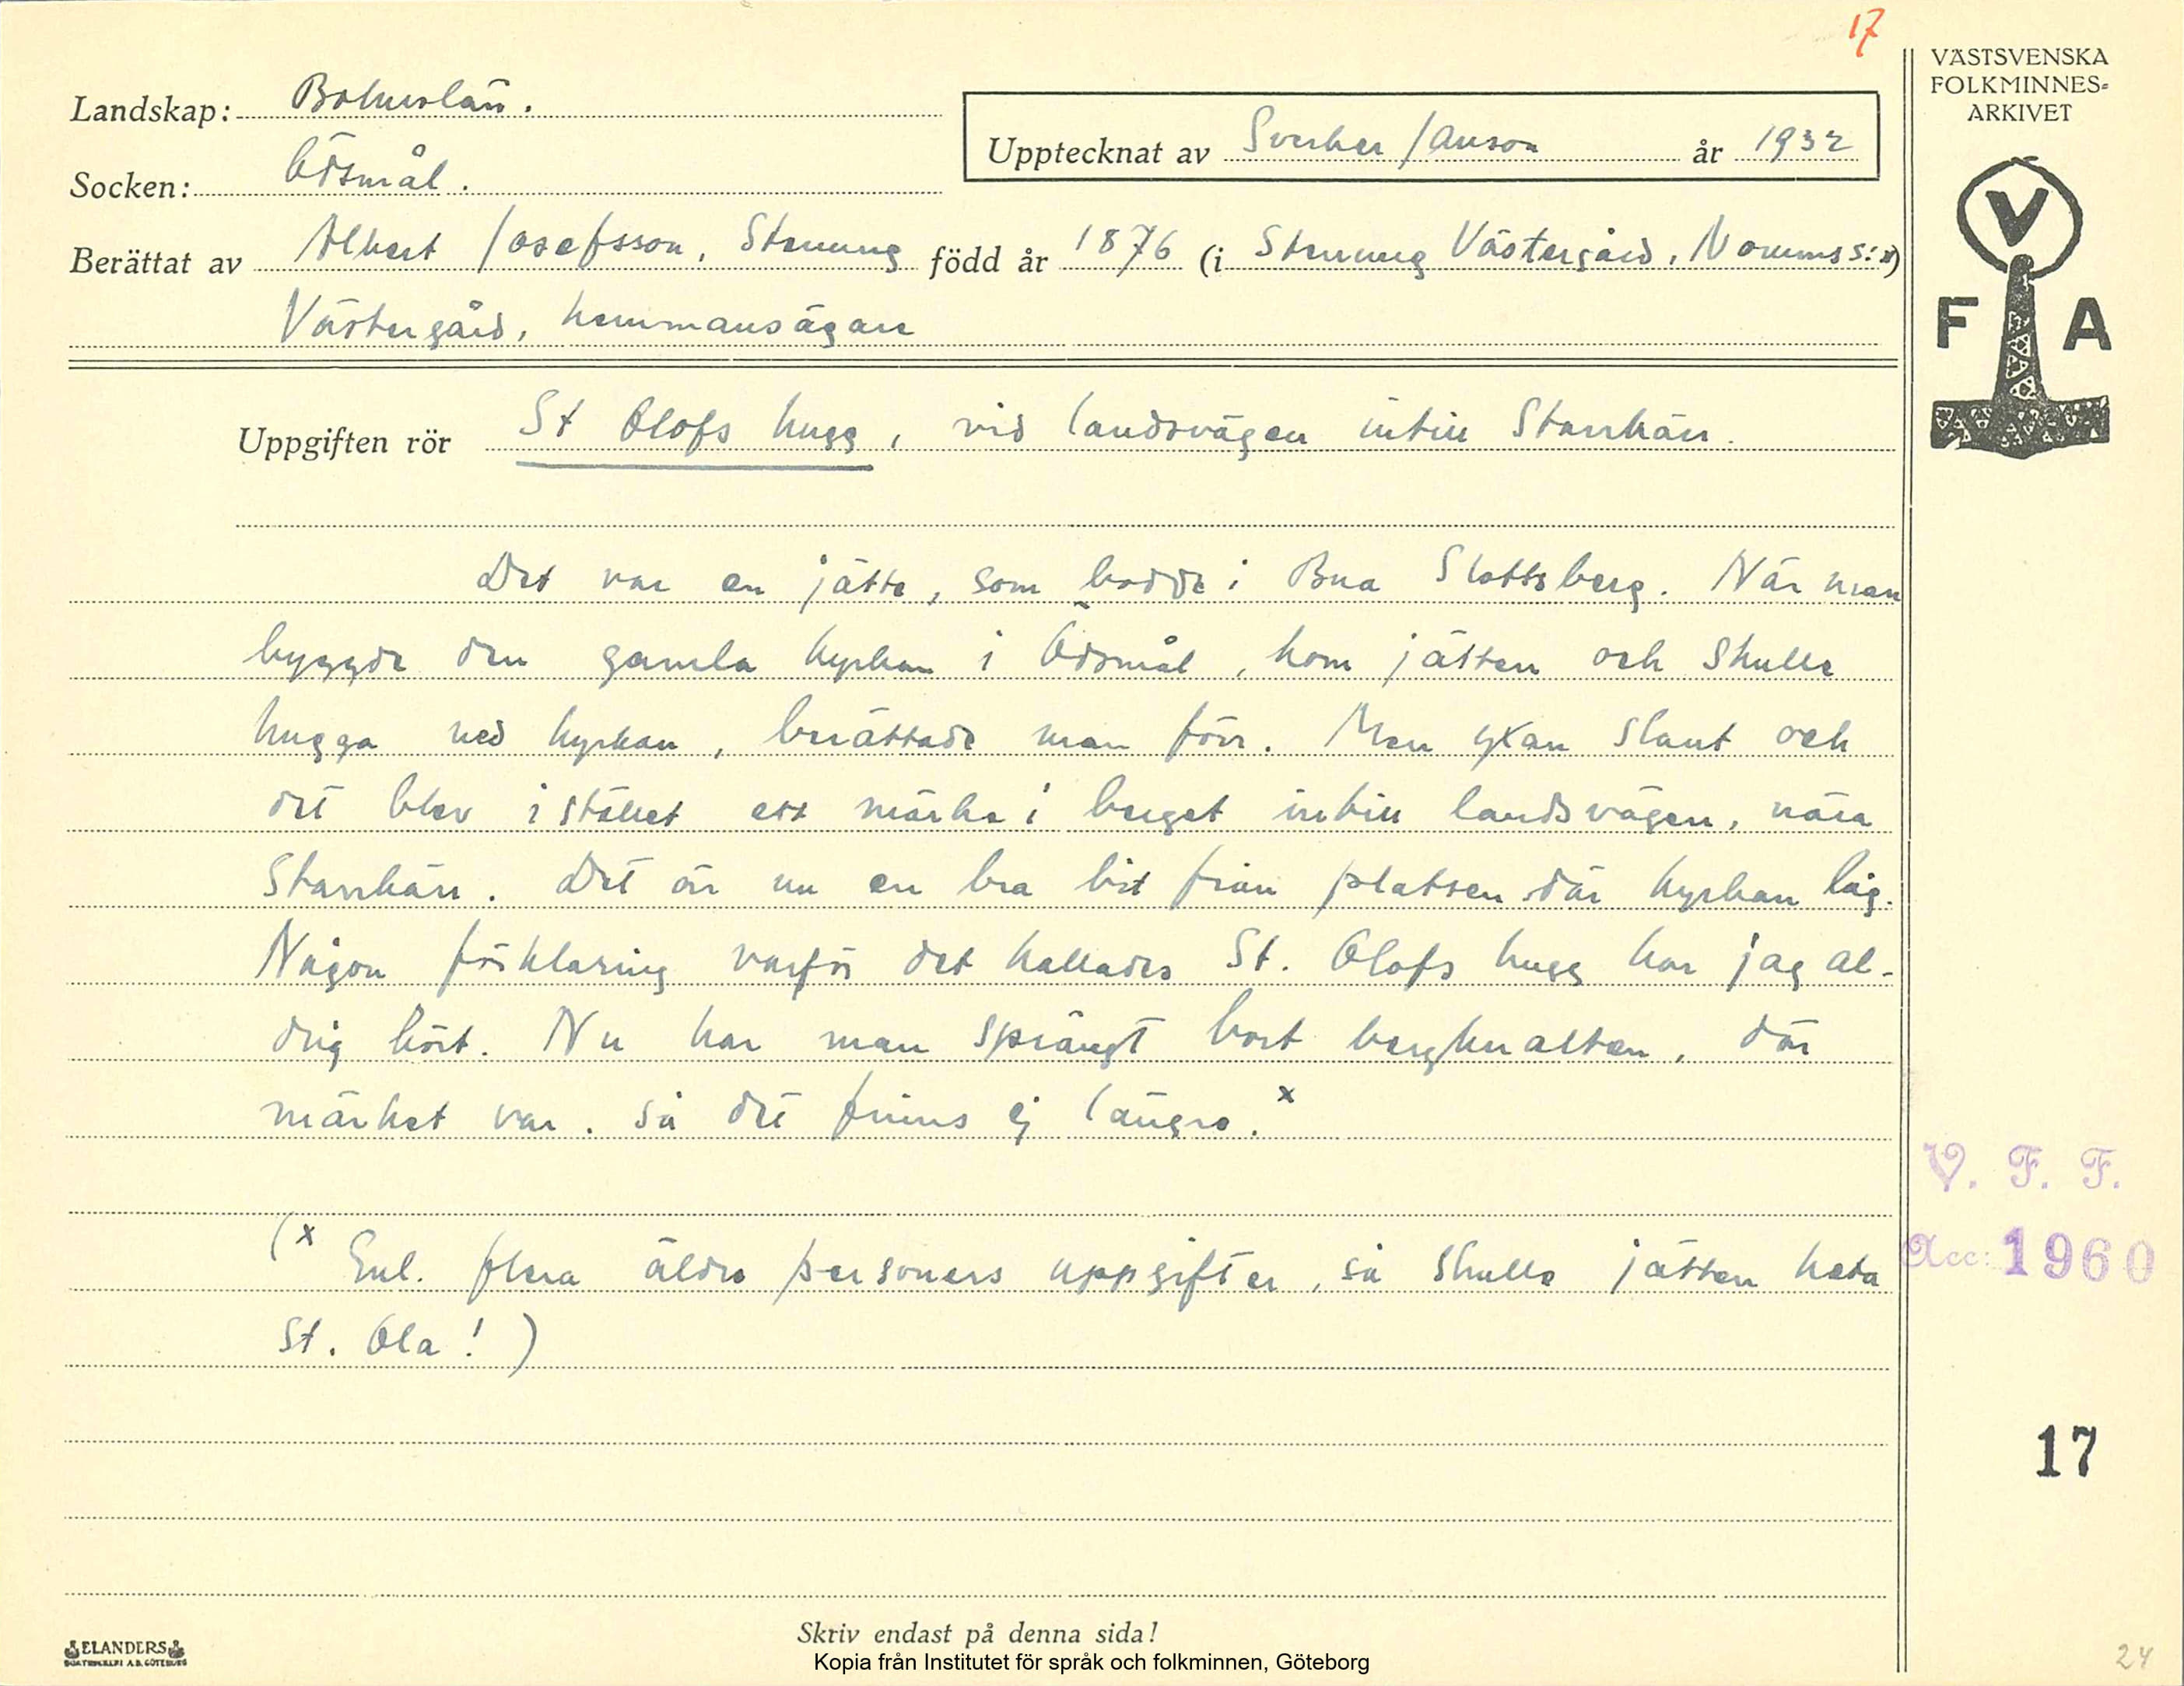 17
VÄSTSVENSKA
FOLKMINNES=
ARKIVET
Landskap: Bohuslän.
Upptecknat av Sverker Janson år 1932
Socken: Ödsmål.
Berättat av Albert Josefsson, Stenung född år 1876 (i Stenung Västergård, Norums s:n)
Västergård, hemmansägare
V
F A
Uppgiften rör St Olofs hugg, vid landsvägen intill Starrkärr.
Det var en jätte, som bodde i Bua Slottsberg. När man
byggde den gamla kyrkan i Ödsmål, kom jätten och skulle
hugga ned kyrkan, berättade man förr. Men yxan slant och
det blev istället ett märke i berget intill landsvägen, nära
Starrkärr. Det är nu en bra bit från platsen där kyrkan låg.
Någon förklaring varför det kallades St. Olofs hugg har jag al-
drig hört. Nu har man sprängt bort bergknalten, där
märket var. så det finns ej längre. x
V. F. F.
(x Enl. flera äldre personers uppgifter, så skulle jätten heta
Acc: 1960
St. Ola! )
17
Skriv endast på denna sida!
ELANDERS
BOKTRYCKERI A.B. GÖTEBORG
Kopia från Institutet för språk och folkminnen, Göteborg
24